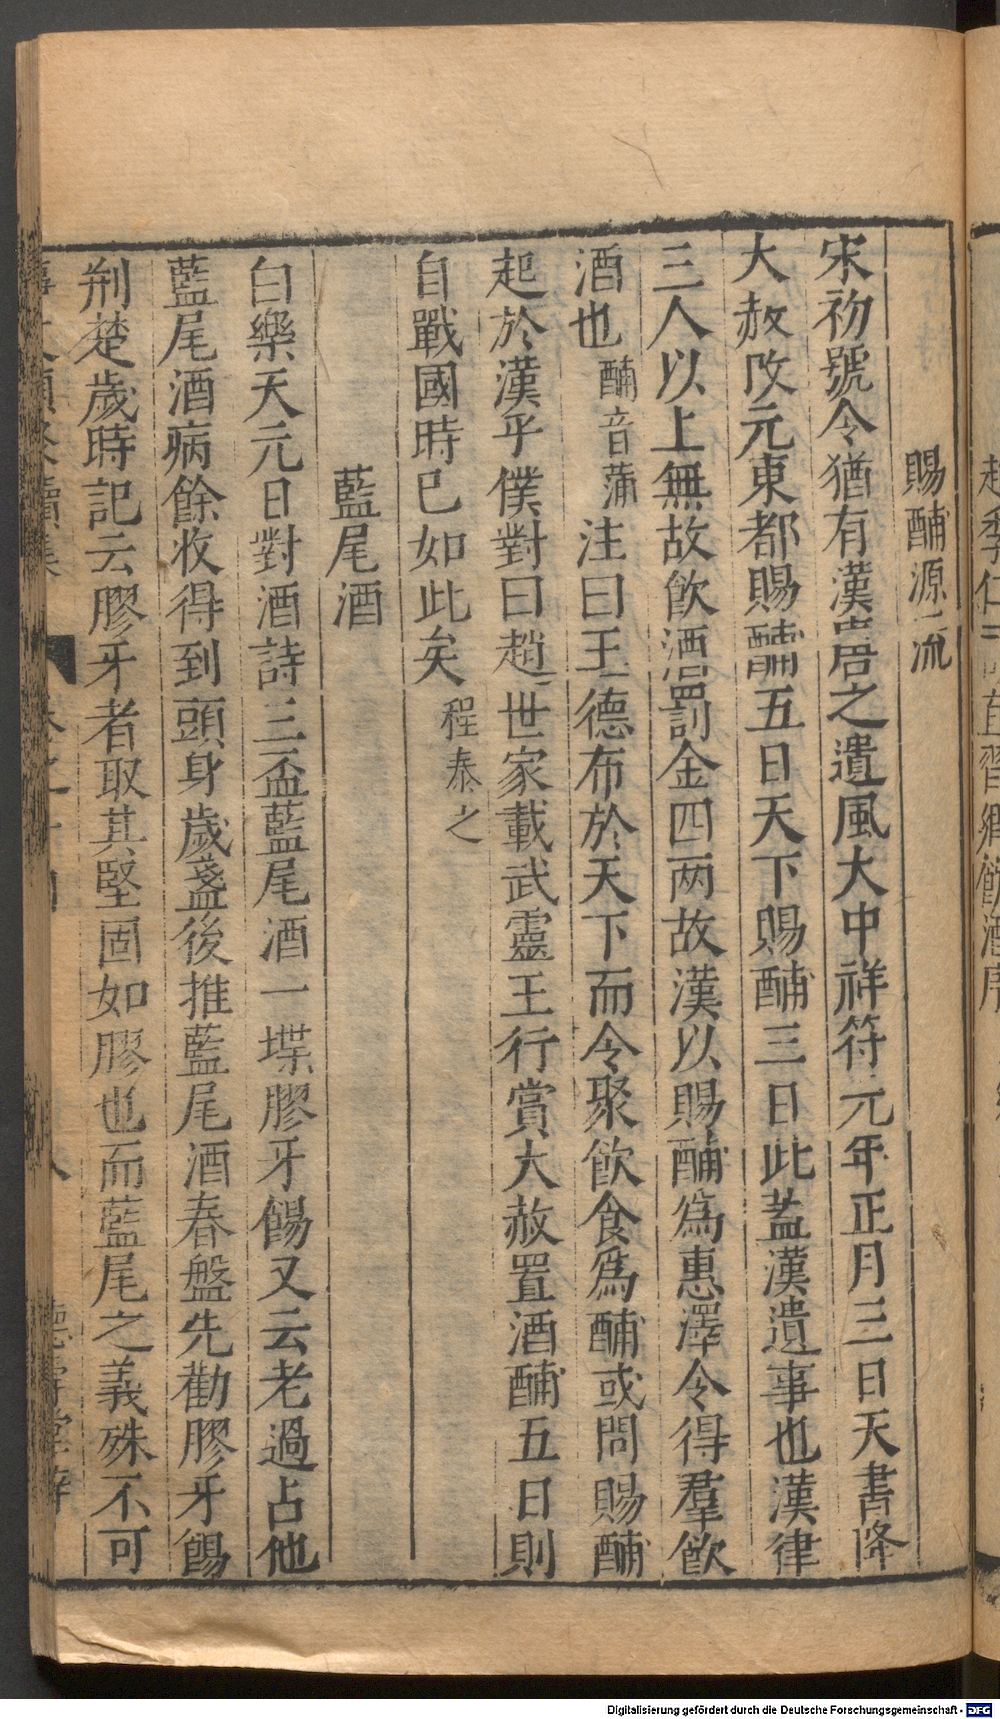 賜酺源流
宋初號令猶有漢唐之遺風大中祥符元年正月三日天書降
大赦改元東都賜酺五日天下賜酺三日此蓋漢遺事也漢律
三人以上無故飲酒罰金四兩故漢以賜酺爲惠澤令得羣飲
酒也酺音蒲注曰王德布於天下而令聚飲食爲酺或問賜酺
起於漢乎僕對曰趙世家載武靈王行賞大赦置酒酺五日則
自戰國時已如此矣程泰之
藍尾酒
白樂天元日對酒詩三盃藍尾酒一堞膠牙餳又云老過占他
藍尾酒病餘收得到頭身歲盞後推藍尾酒春盤先勸膠牙餳
荆楚歲時記云膠牙者取其堅固如膠也而藍尾之義殊不可
Digitalisierung gefördert durch die Deutsche Forschungsgemeinschaft - DFG